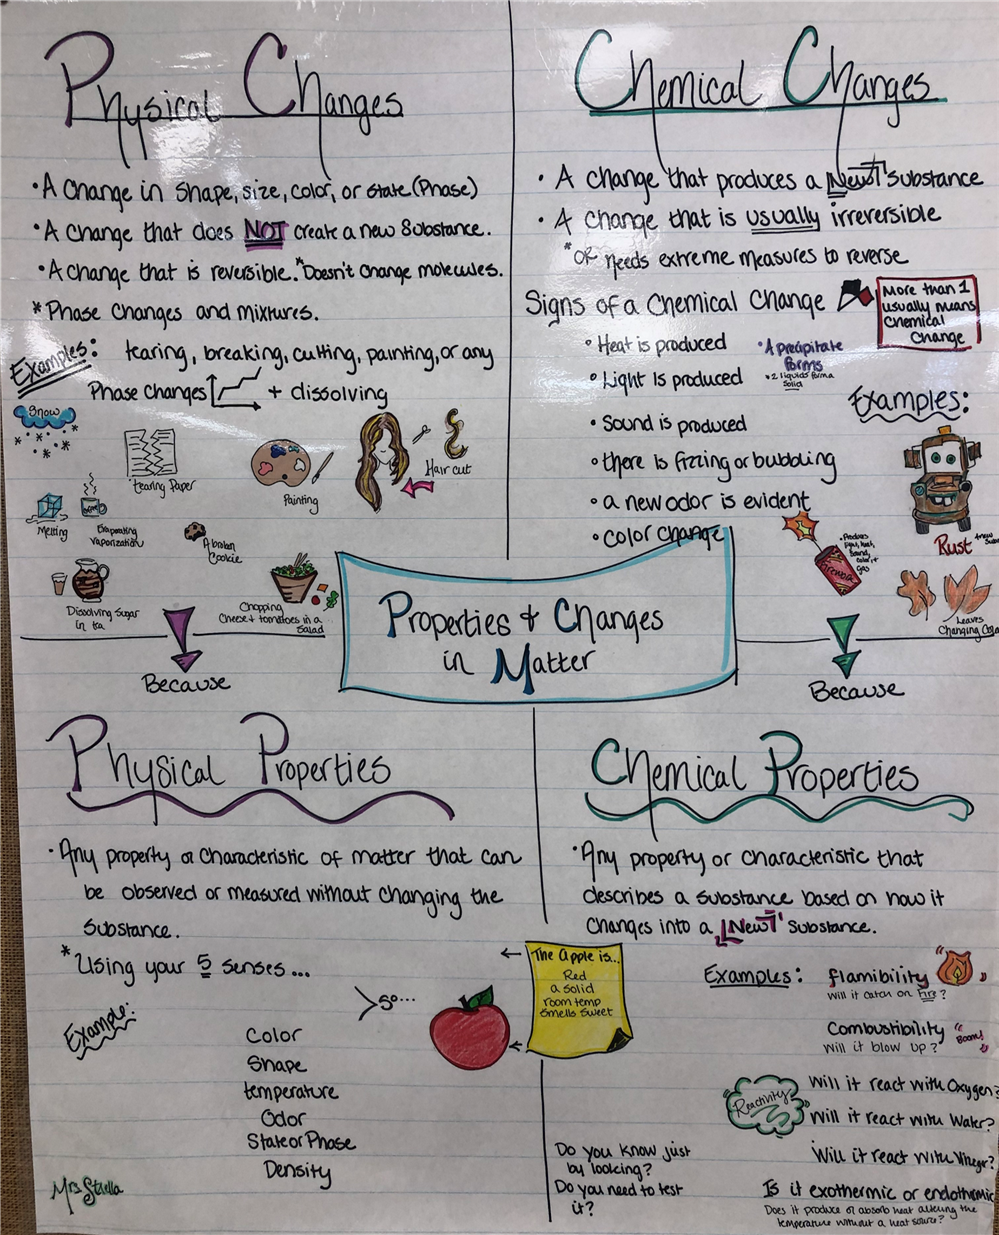 Physical Changes
• A Change in Shape, size, color, or state (Phase)
• A change that does NOT create a new Substance.
• A change that is reversible. *Doesn't change molecules.
* Phase Changes and mixtures.
Examples: tearing, breaking, cutting, painting, or any
Phase Changes + dissolving
Snow
tearing Paper
Painting
Hair cut
Melting
Evaporating
Vaporization
A broken
Cookie
Dissolving Sugar
in tea
Chopping
Cheese + tomatoes in a
Salad
Because
Chemical Changes
• A change that produces a "New" substance
• A change that is usually irreversible
*OR needs extreme measures to reverse
Signs of a Chemical Change
More than 1
usually means
Chemical
Change
• Heat is produced
• Light is produced
• Sound is produced
• there is fizzing or bubbling
• a new odor is evident
• color change
• A precipitate
forms
• 2 liquids form a
solid
Examples:
Rust
• Produces
light, heat,
Sound,
color, +
gas
Leaves
Changing
Because
Properties + Changes
in Matter
Physical Properties
• Any property or characteristic of matter that can
be observed or measured without changing the
Substance.
* Using your 5 senses...
Example:
Color
Shape
temperature
Odor
State or Phase
Density
So...
The Apple is...
Red
a solid
room temp
smells sweet
Mrs. Strella
Chemical Properties
• Any property or characteristic that
describes a substance based on how it
Changes into a "New" Substance.
Examples: flamibility
Will it catch on fire?
Combustibility
Will it blow up?
"Boom!"
Reactivity
Will it react with Oxygen?
Will it react with Water?
Will it react with Vinegar?
Is it exothermic or endothermic
Does it produce or absorb heat altering the
temperature without a heat source?
Do you know just
by looking?
Do you need to test
it?